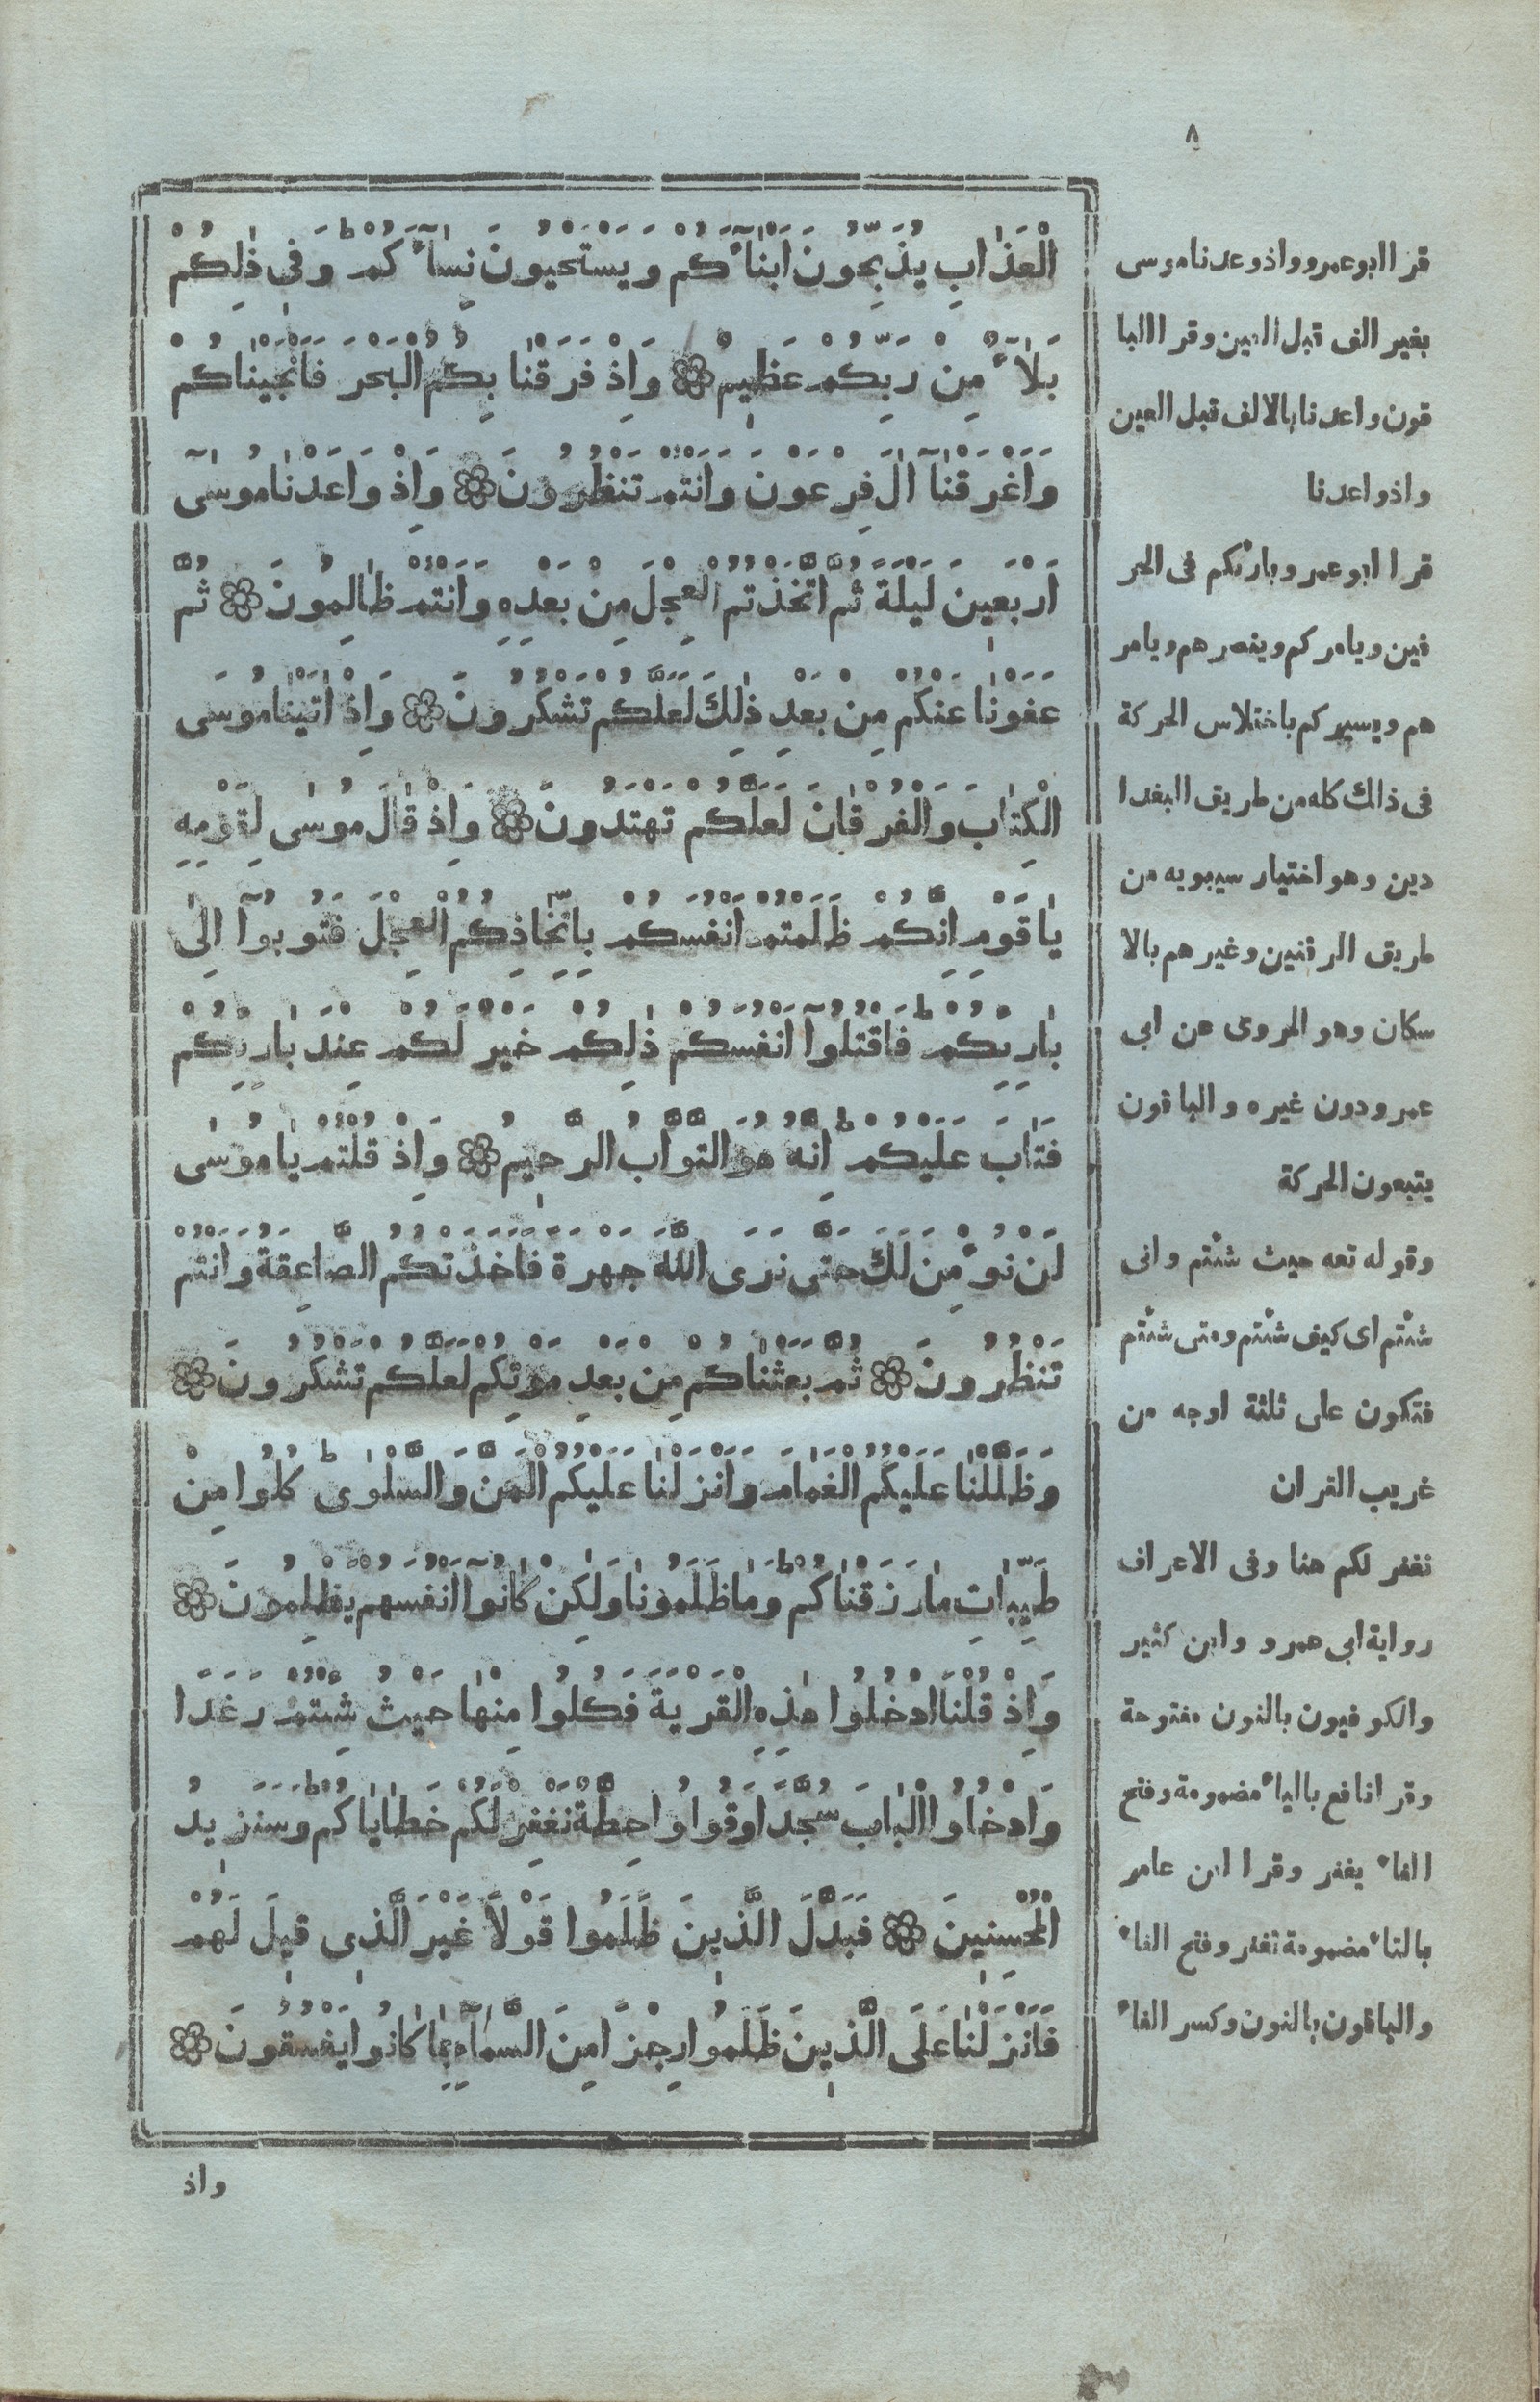 ٨
الْعَذَابِ يُذَبِّحُونَ اَبْنَآءَكُمْ وَيَسْتَحْيُونَ نِسَآءَكُمْ وَفِى ذٰلِكُمْ
بَلَآءٌ مِنْ رَبِّكُمْ عَظِيمٌ ۞ وَاِذْ فَرَقْنَا بِكُمُ الْبَحْرَ فَاَنْجَيْنَاكُمْ
وَاَغْرَقْنَآ اٰلَ فِرْعَوْنَ وَاَنْتُمْ تَنْظُرُونَ ۞ وَاِذْ وَاعَدْنَا مُوسٰٓى
اَرْبَعِينَ لَيْلَةً ثُمَّ اتَّخَذْتُمُ الْعِجْلَ مِنْ بَعْدِهِ وَاَنْتُمْ ظَالِمُونَ ۞ ثُمَّ
عَفَوْنَا عَنْكُمْ مِنْ بَعْدِ ذٰلِكَ لَعَلَّكُمْ تَشْكُرُونَ ۞ وَاِذْ اٰتَيْنَا مُوسَى
الْكِتَابَ وَالْفُرْقَانَ لَعَلَّكُمْ تَهْتَدُونَ ۞ وَاِذْ قَالَ مُوسٰى لِقَوْمِهِ
يَا قَوْمِ اِنَّكُمْ ظَلَمْتُمْ اَنْفُسَكُمْ بِاتِّخَاذِكُمُ الْعِجْلَ فَتُوبُوٓا اِلٰى
بَارِئِكُمْ ط فَاقْتُلُوٓا اَنْفُسَكُمْ ذٰلِكُمْ خَيْرٌ لَكُمْ عِنْدَ بَارِئِكُمْ
فَتَابَ عَلَيْكُمْ ط اِنَّهُ هُوَ التَّوَّابُ الرَّحِيمُ ۞ وَاِذْ قُلْتُمْ يَا مُوسٰى
لَنْ نُؤْمِنَ لَكَ حَتَّى نَرَى اللّٰهَ جَهْرَةً فَاَخَذَتْكُمُ الصَّاعِقَةُ وَاَنْتُمْ
تَنْظُرُونَ ۞ ثُمَّ بَعَثْنَاكُمْ مِنْ بَعْدِ مَوْتِكُمْ لَعَلَّكُمْ تَشْكُرُونَ ۞
وَظَلَّلْنَا عَلَيْكُمُ الْغَمَامَ وَاَنْزَلْنَا عَلَيْكُمُ الْمَنَّ وَالسَّلْوٰى ط كُلُوا مِنْ
طَيِّبَاتِ مَا رَزَقْنَاكُمْ ط وَمَا ظَلَمُونَا وَلٰكِنْ كَانُوٓا اَنْفُسَهُمْ يَظْلِمُونَ ۞
وَاِذْ قُلْنَا ادْخُلُوا هٰذِهِ الْقَرْيَةَ فَكُلُوا مِنْهَا حَيْثُ شِئْتُمْ رَغَدًا
وَادْخُلُوا الْبَابَ سُجَّدًا وَقُولُوا حِطَّةٌ نَغْفِرْ لَكُمْ خَطَايَاكُمْ ط وَسَنَزِيدُ
الْمُحْسِنِينَ ۞ فَبَدَّلَ الَّذِينَ ظَلَمُوا قَوْلًا غَيْرَ الَّذِى قِيلَ لَهُمْ
فَاَنْزَلْنَا عَلَى الَّذِينَ ظَلَمُوا رِجْزًا مِنَ السَّمَآءِ بِمَا كَانُوا يَفْسُقُونَ ۞
واذ
قرا ابو عمرو واذ وعدنا موسى
بغير الف قبل العين وقرا البا
قون واعدنا بالالف قبل العين
واذ واعدنا
قرا ابو عمرو بارئكم فى الحر
فين ويامركم وينصرهم ويامر
هم ويسيركم باختلاس الحركة
فى ذالك كله من طريق البغدا
ديىن وهو اختيار سيبويه من
طريق الرقيين وغيرهم بالا
سكان وهو المروى عن ابى
عمرو دون غيره والباقون
يتبعون الحركة
وقوله تعه حيث شئتم وانى
شئتم اى كيف شئتم ومتى شئتم
فتكون على ثلثة اوجه من
غريب القران
نغفر لكم هنا وفى الاعراف
رواية ابى عمرو وابن كثير
والكوفيون بالنون مفتوحة
وقرا نافع بالياء مضمومة وفتح
الفاء يغفر وقرا ابن عامر
بالتاء مضمومة تغفر وفتح الفاء
والباقون بالنون وكسر الفاء